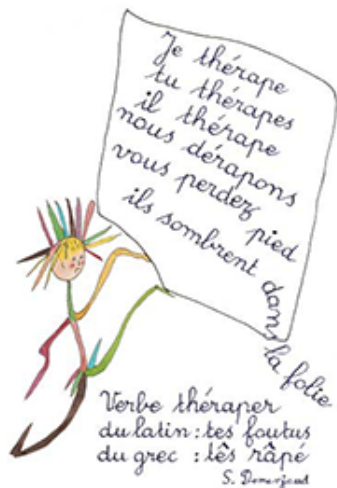 Je thérape
tu thérapes
il thérape
nous dérapons
vous perdez
pied
ils sombrent dans
la folie
Verbe théraper
du latin : tes foutus
du grec : tês râpé
S.